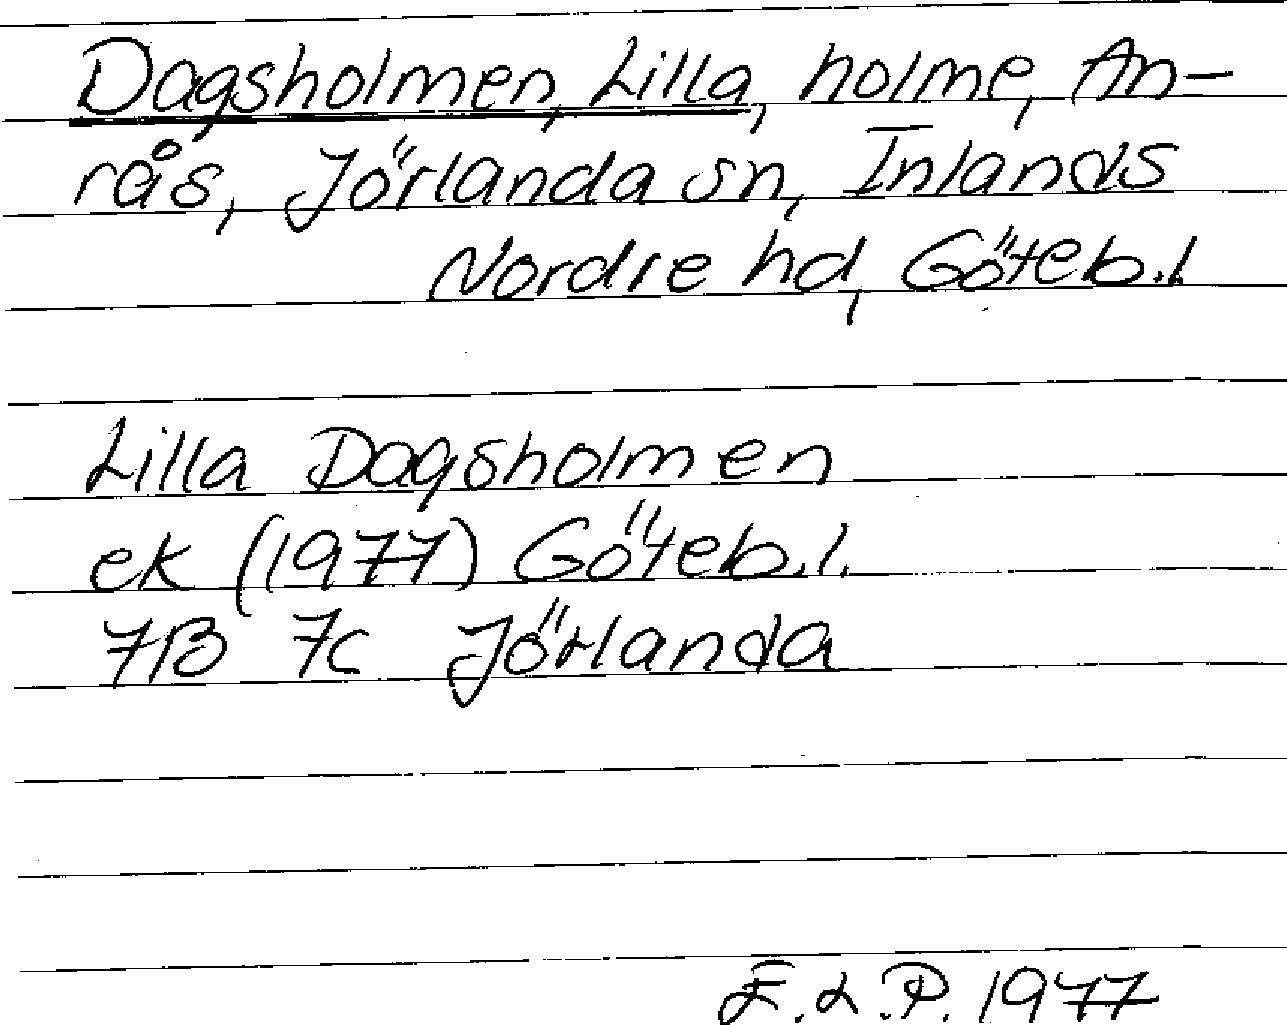 Dagsholmen, Lilla, holme, An-
rås, Jörlanda sn, Inlands
Nordre hd, Göteb.l
Lilla Dagsholmen
ek (1977) Göteb.l.
7B 7c Jörlanda
E.L.P. 1977